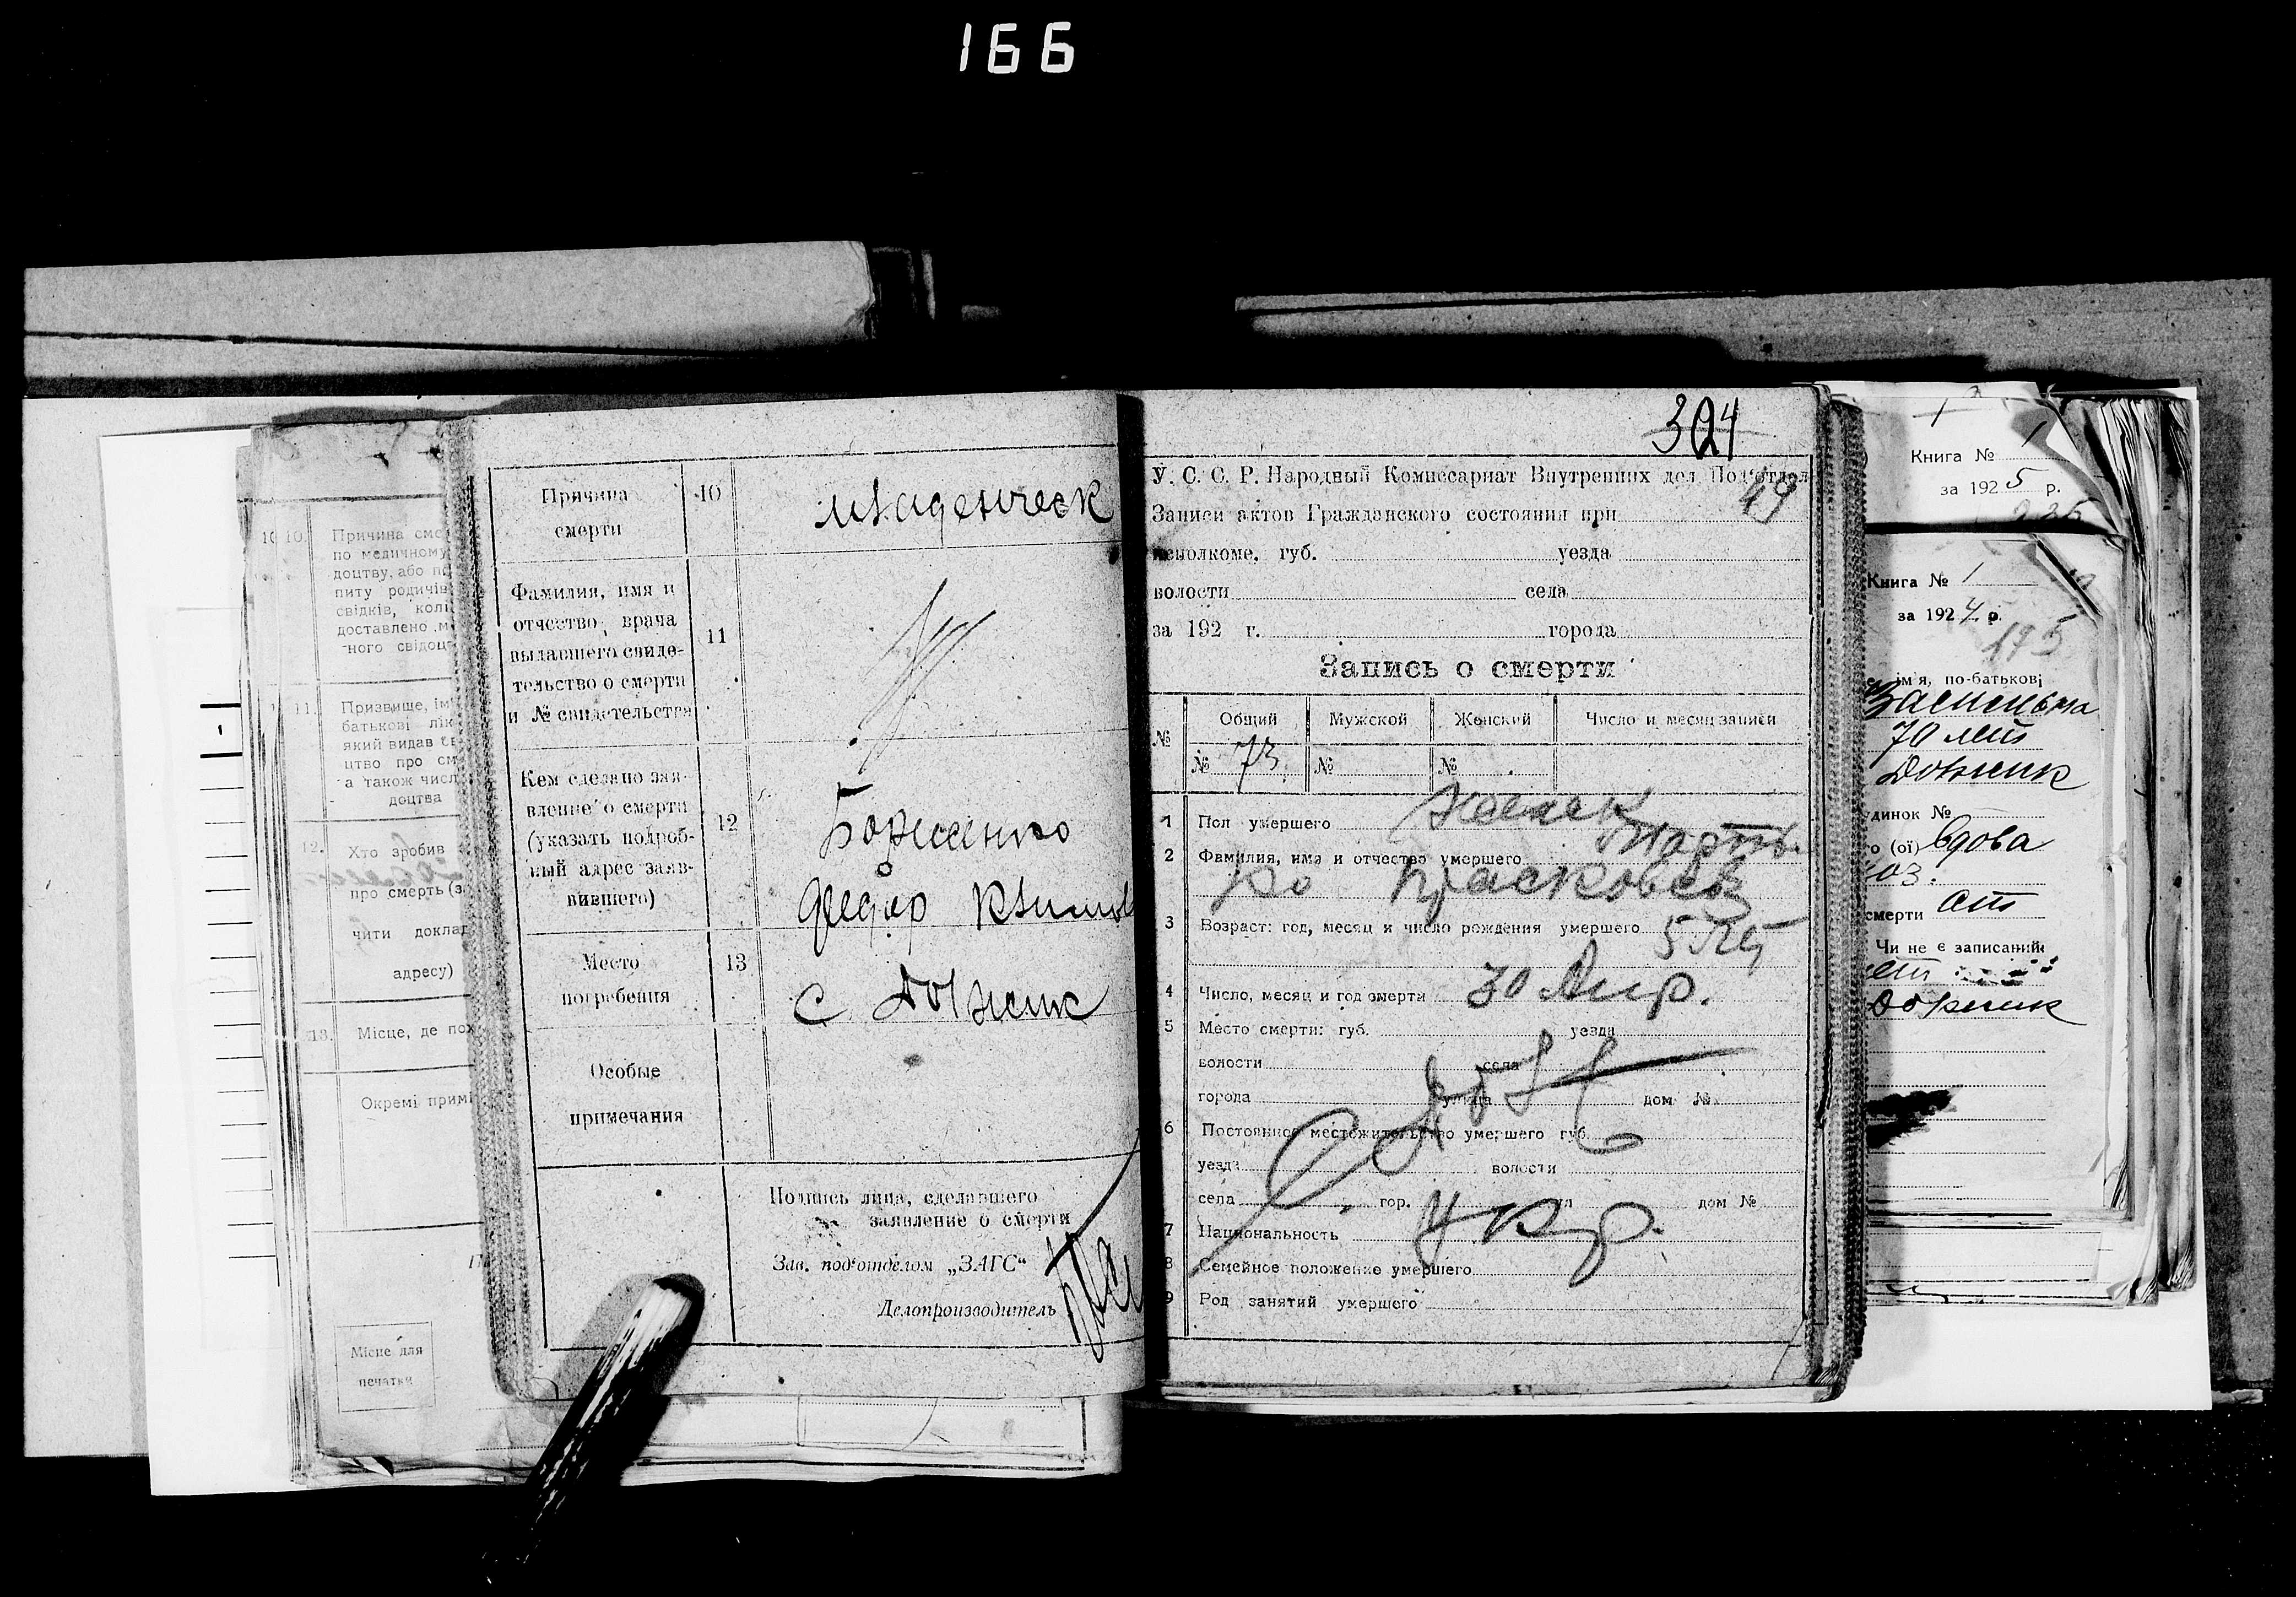 166
10.
Причина сме
по медичному
доцтву, або п
питу родичів
свідків, колі
доставлено м
ного свідоц
11.
Призвище, ім
батькові лік
який видав
цтво про см
а також числ
доцтва
12.
Хто зробив
про смерть (з
чити доклад
адресу)
13.
Місце, де пох
Окремі примі
Місце для
печатки
Причина
смерти
10
младенческ
Фамилия, имя и
отчество врача
выдавшего свиде-
тельство о смерти
и № свидетельства
11
Кем сделано зая-
вление о смерти
(указать подроб-
ный адрес заяв-
вившего)
12
Боженко
Федор Климов
Место
погребения
13
с Должик
Особые
примечания
Подпись лица, сделавшего
заявление о смерти
Зав. под'отделом „ЗАГС“
Делопроизводитель
324
49
У. С. С. Р. Народный Комиссариат Внутренних дел Под'отдел
Записи актов Гражданского состояния при
исполкоме, губ. уезда
волости села
за 192 г. города
Запись о смерти
№ Общий Мужской Женский Число и месяц записи
№ 73 № №
1 Пол умершего женск
2 Фамилия, имя и отчество умершего
3 Возраст: год, месяц и число рождения умершего 5 лет
4 Число, месяц и год смерти 30 Апр.
5 Место смерти: губ. уезда
волости села
города улица дом №
6 Постоянное местожительство умершего губ.
уезда волости
села гор. дом №
7 Национальность Укр.
8 Семейное положение умершего
9 Род занятий умершего
Книга № 1
за 1925 р.
Книга № 1
за 1924 р.
195
ім'я, по-батькові
70 лет
Должик
динок №
о (ої) вдова
смерти от
Чи не є записаний
Должик